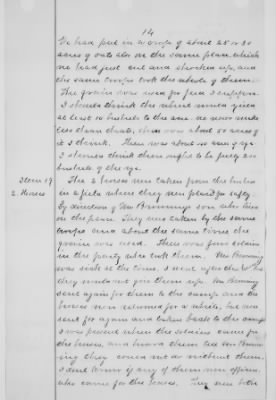 14
We had put in a crop of about 25 or 30
acres of oats also on the same place, which
we had just cut and shocked up, and
the same troops took the whole of them.
The grain was used for feed I suppose.
I should think the wheat would yield
at least 10 bushels to the acre. We never make
less than that, there was about 50 acres of
it I think. There was about 10 acres of rye
I should think there ought to be fifty
bushels of the rye.
Item 1st The 2 horses were taken from the bushes
2. Horses in a field where they were placed for safety
by direction of Mr Brumming son who lives
on the place. They were taken by the same
troops and about the same time the
grain was used. There was four soldiers
in the party who took them. Mr
was sick at the time. I went after the
they would not give them up. Mr
sent again for them to the camps and the
horses were returned for a while, but were
sent for again and taken back to the camp
I was present when the soldiers came for
the horses, and heard them tell Mr
ing they could not do without them.
I dont know if any of them were officers
who came for the horses. They were both